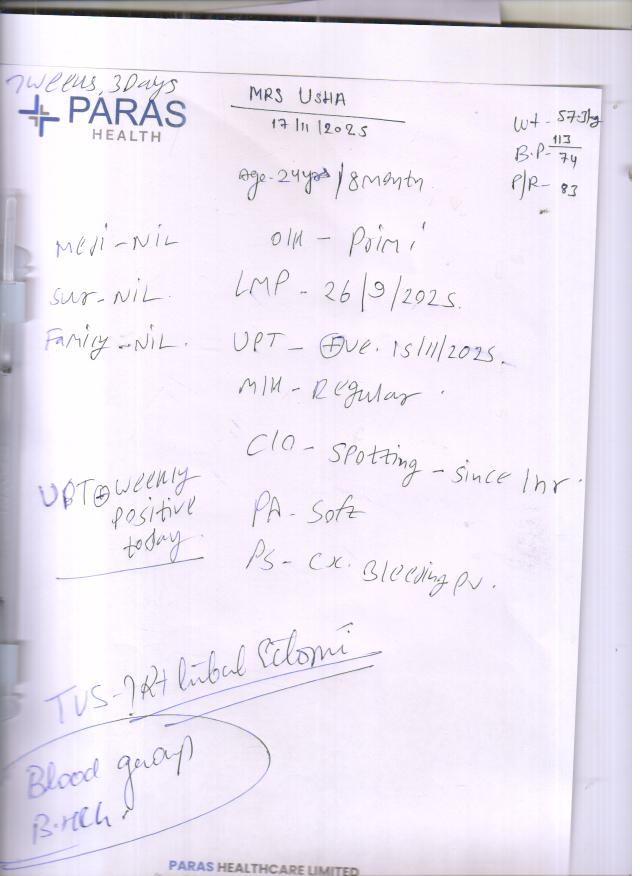 7weeks, 3Days
PARAS
HEALTH
MRS USHA
17/11/2025
Wt - 57.3kg
B.P - 113/74
P/R - 83
Age - 24yrs / 8month
Medi - NIL
O/H - Primi
Sur - NIL.
LMP - 26/9/2025.
Family - NIL.
UPT - ⊕ve. 15/11/2025.
M/H - Regular.
C/O - Spotting - since 1hr.
UPT ⊕ weekly
positive
today.
PA - Soft
PS - Cx. Bleeding PV.
TVS - ? Rt tubal Ectopi
Blood group
B.HCG.
PARAS HEALTHCARE LIMITED